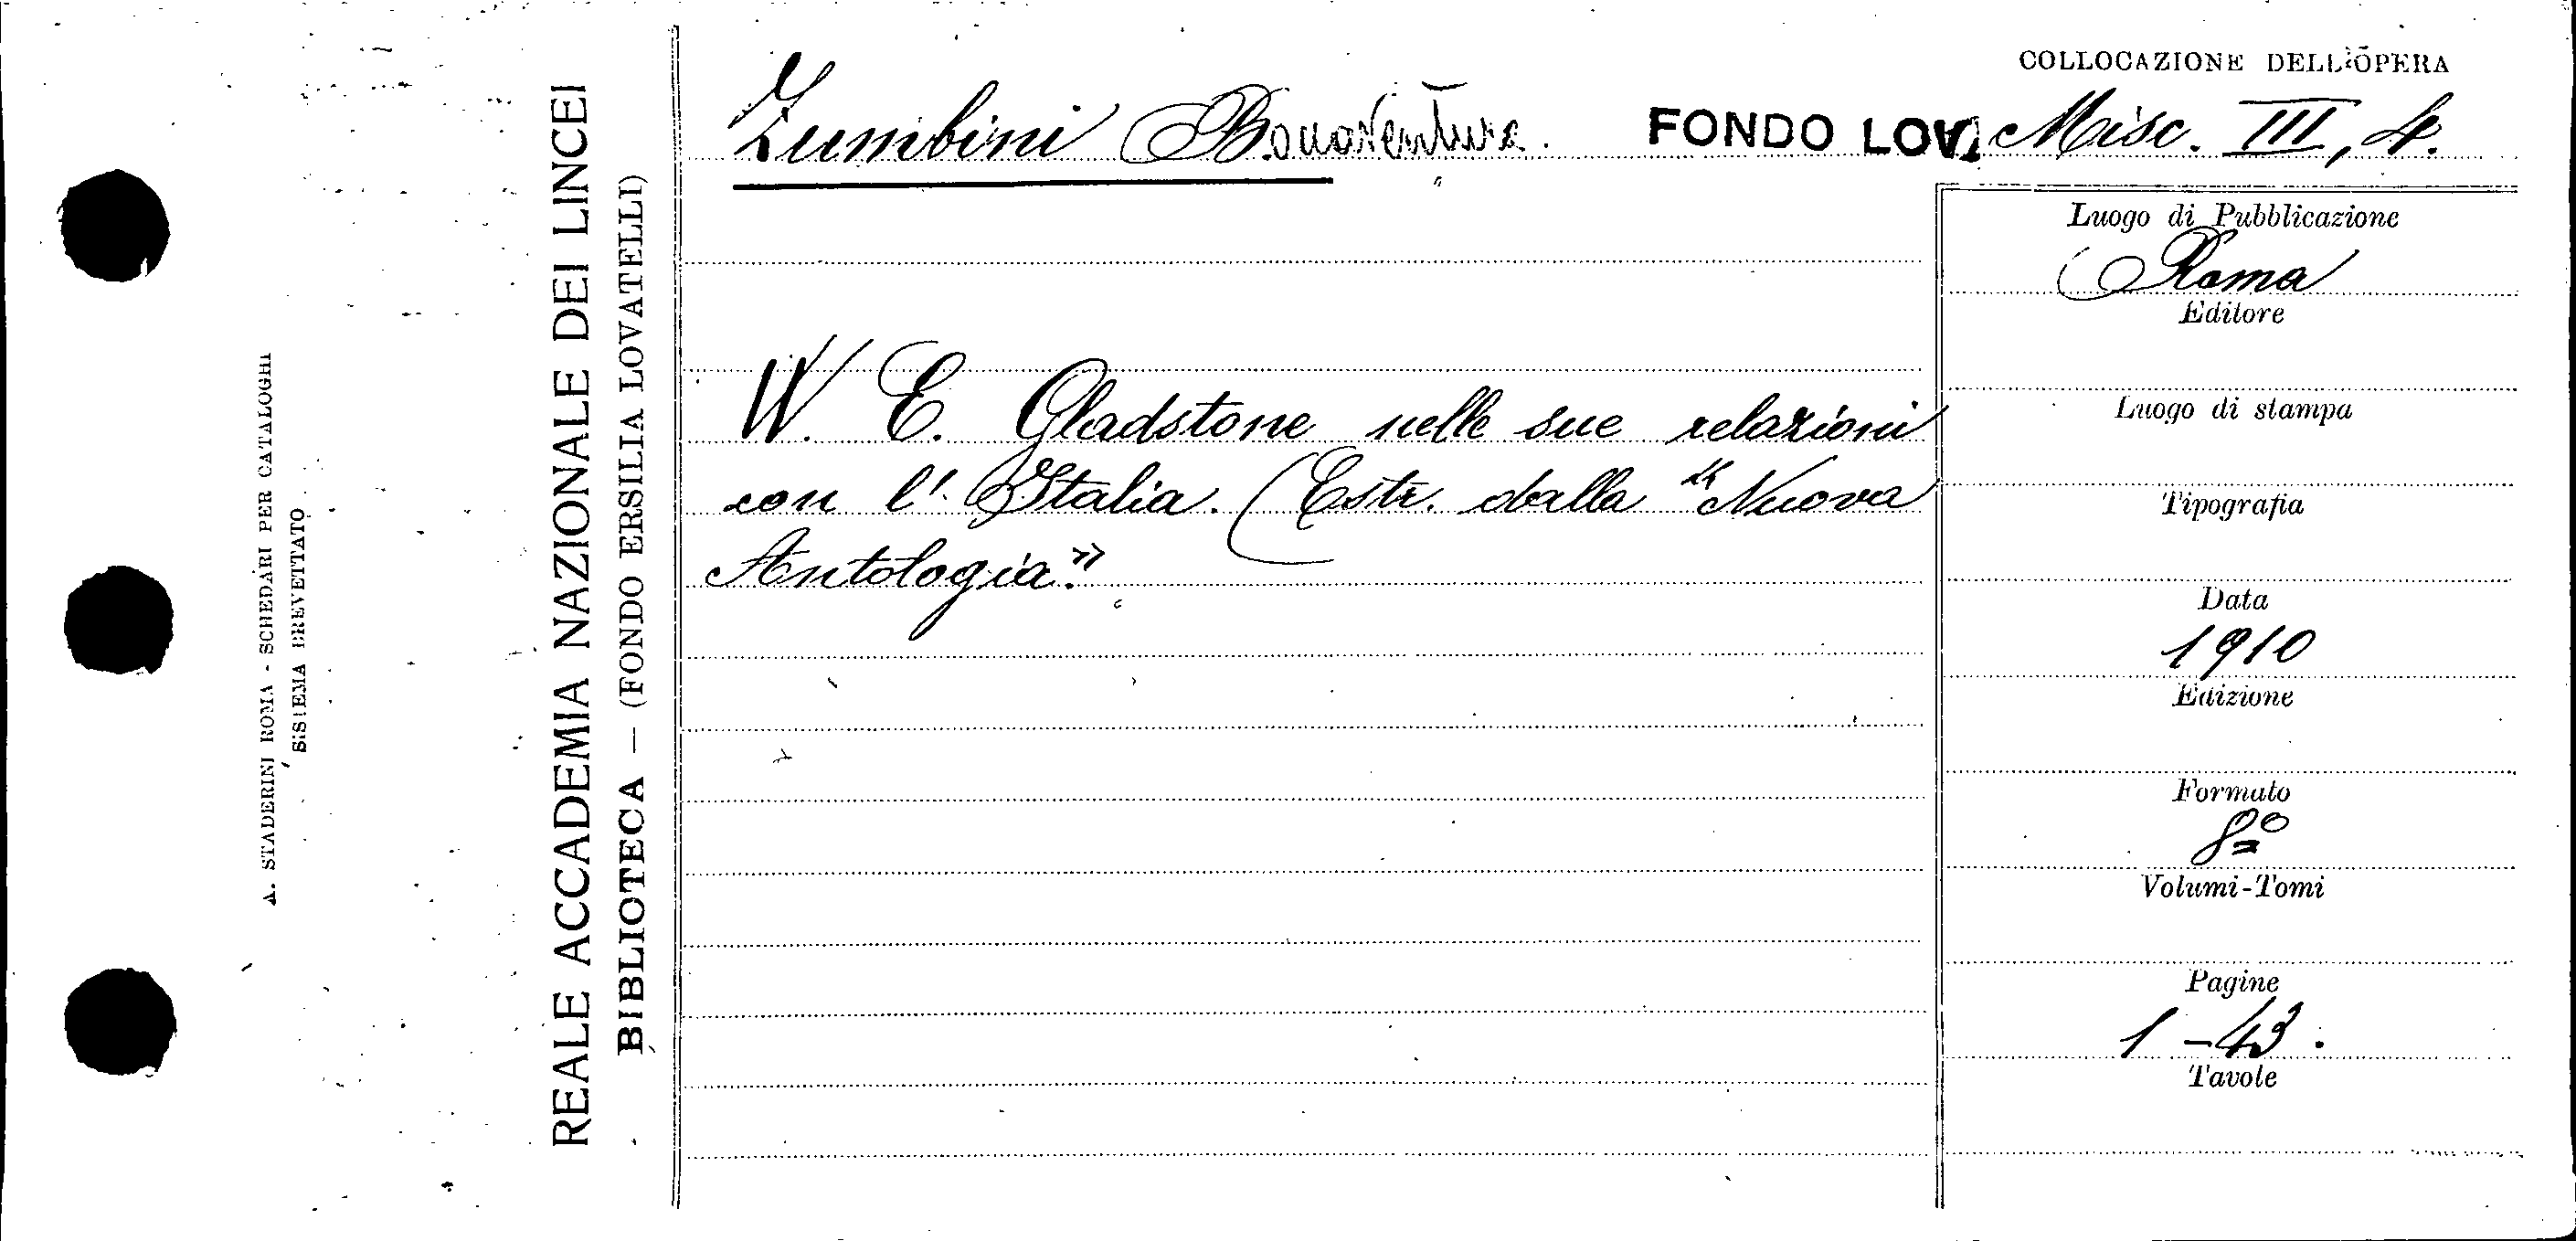 COLLOCAZIONE DELL'OPERA
Zumbini Bonaventura. FONDO LOV. Misc. III, 4.
W. E. Gladstone nelle sue relazioni
con l'Italia. (Estr. dalla "Nuova
Antologia."
Luogo di Pubblicazione
Roma
Editore
Luogo di stampa
Tipografia
Data
1910
Edizione
Formato
8º
Volumi-Tomi
Pagine
1-43.
Tavole
REALE ACCADEMIA NAZIONALE DEI LINCEI
BIBLIOTECA — (FONDO ERSILIA LOVATELLI)
A. STADERINI ROMA - SCHEDARI PER CATALOGHI
SISTEMA BREVETTATO